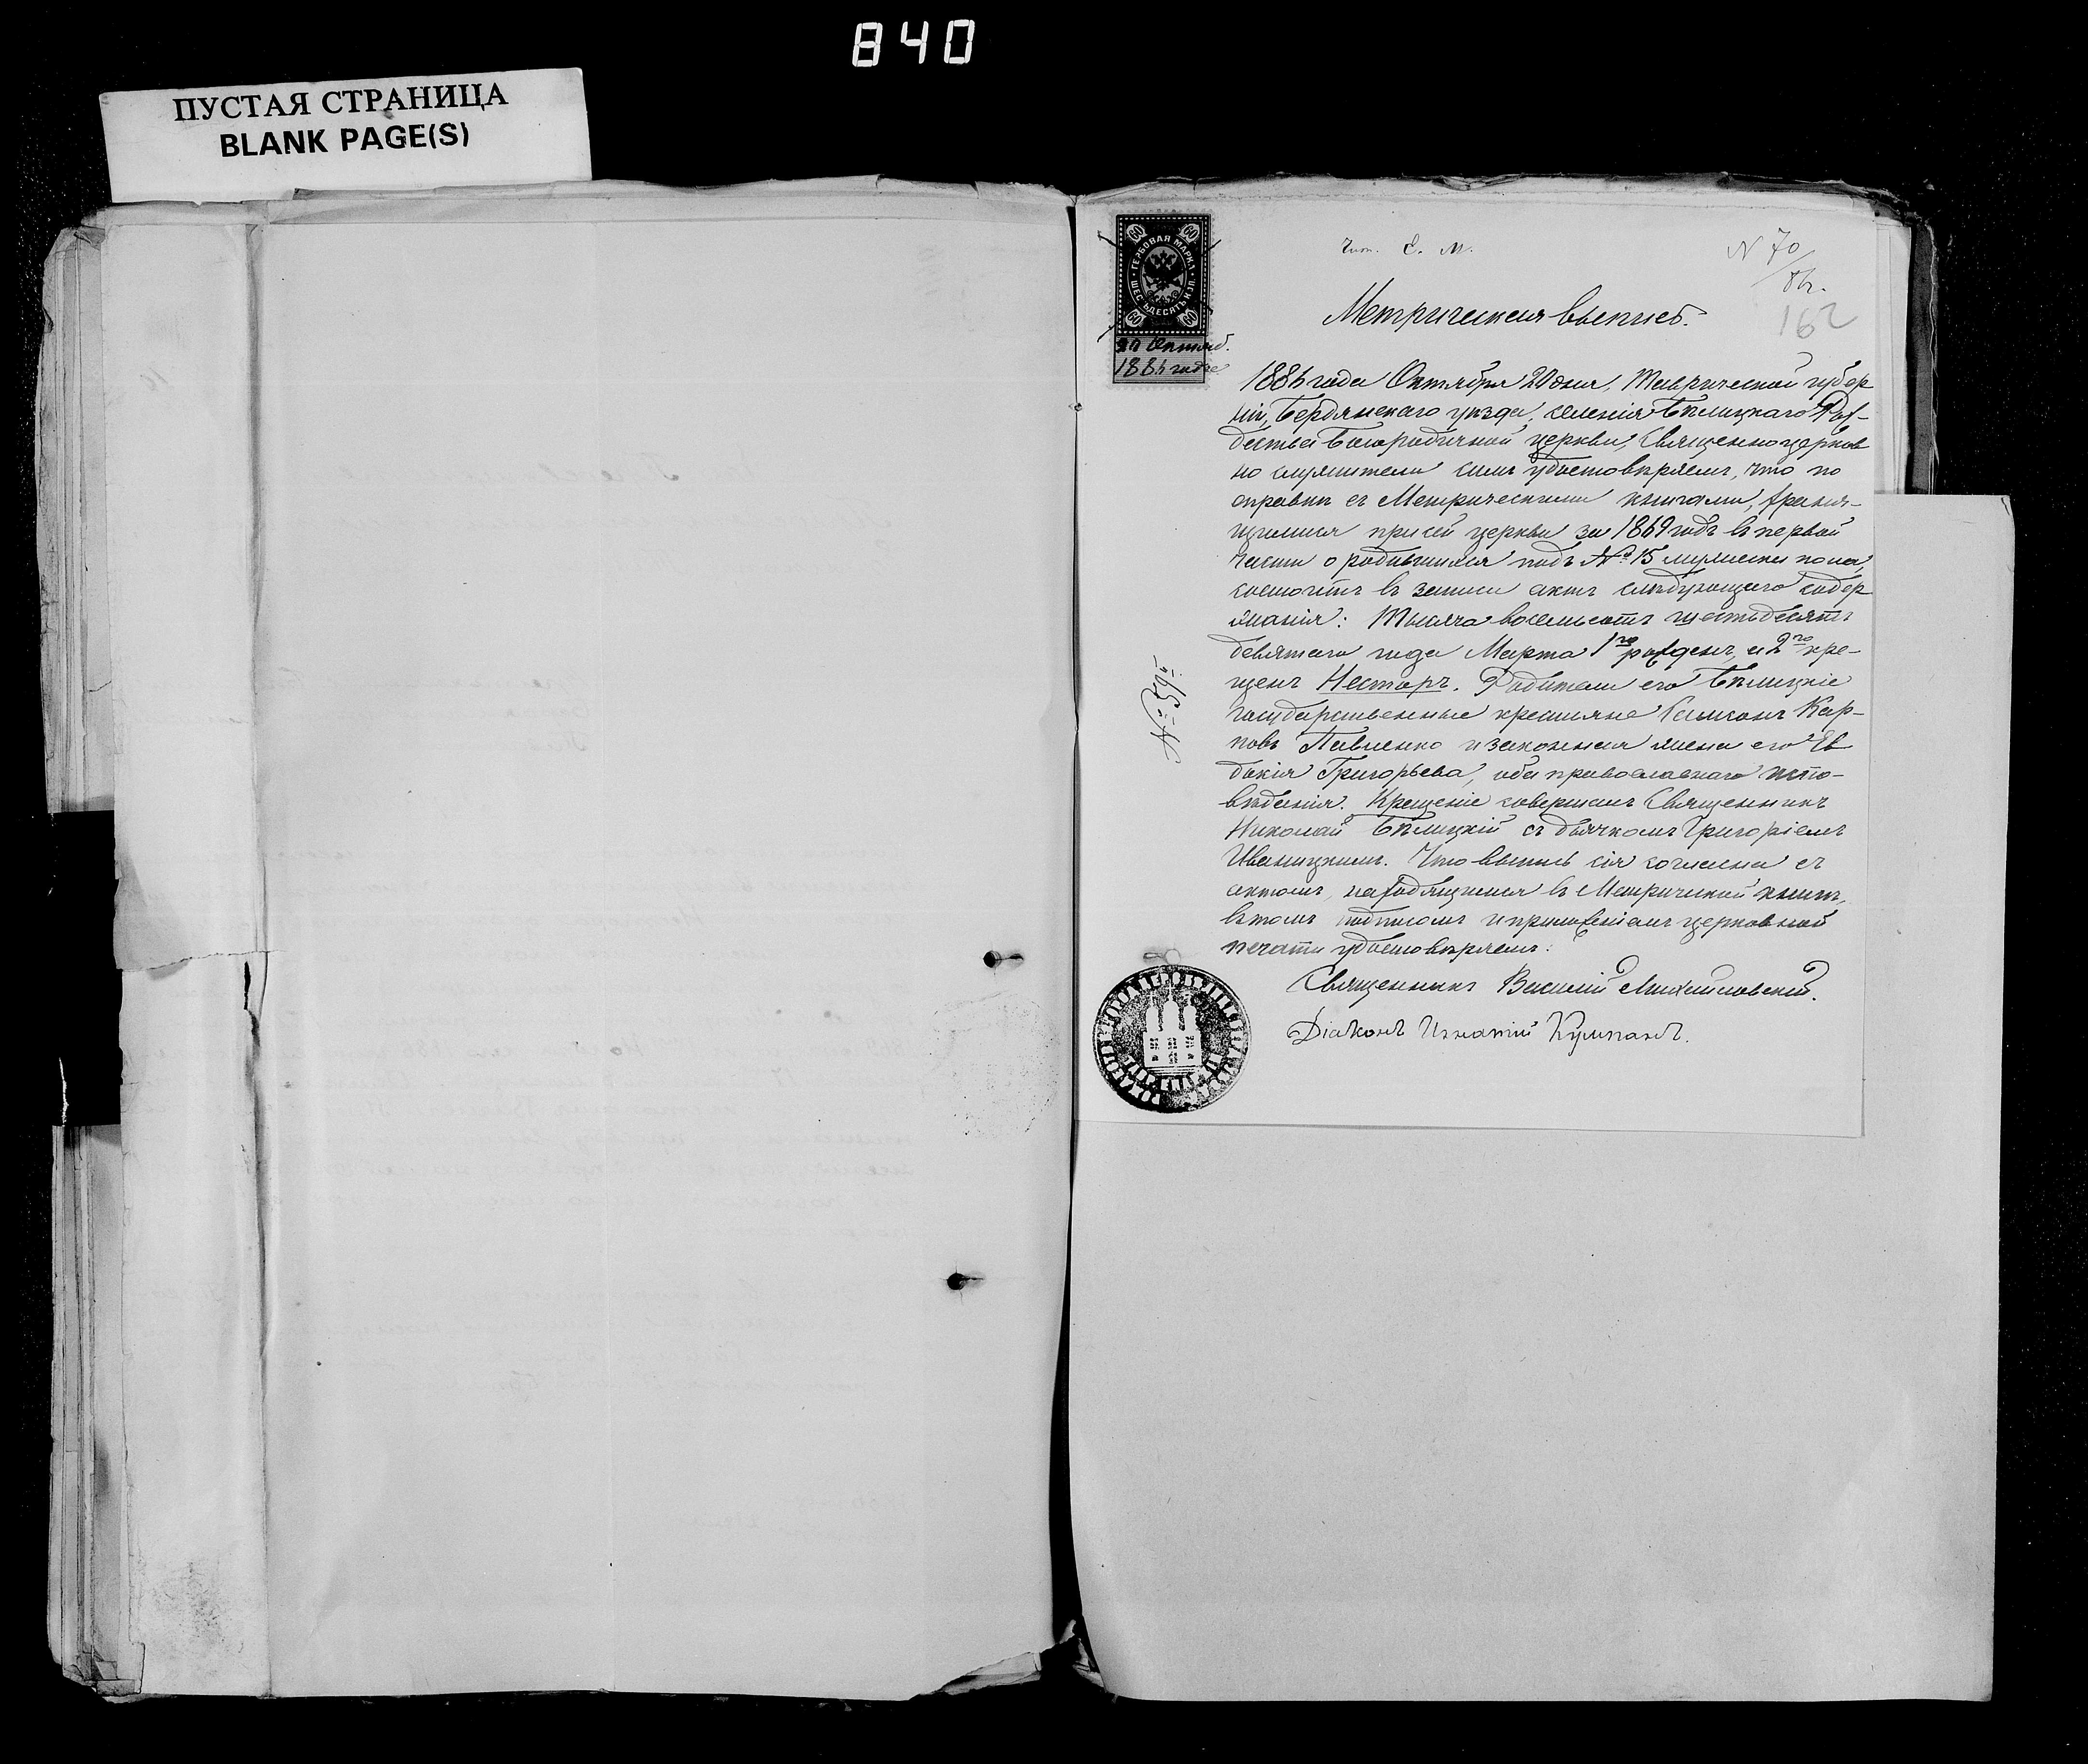 840
ПУСТАЯ СТРАНИЦА
BLANK PAGE(S)
60 60
ГЕРБОВАЯ МАРКА
ШЕСТЬДЕСЯТЬ КОП.
60 60
20 Октяб.
1886 года
Е. М.
N 70/86.
162
Метрическая выпись.
1886 года Октября 20 дня, Таврической губер
ніи, Бердянскаго уѣзда, селенія Бѣлицкаго Рож-
дества Богородичной церкви, Священноцерков
но служители симъ удостовѣряемъ, что по
справкѣ съ Метрическими книгами, храня-
щимися при сей церкви за 1869 годъ въ первой
части о родившихся подъ № 15 мужеска пола,
состоитъ въ записи актъ слѣдующаго содер
жанія: Тысяча восемьсотъ шестьдесятъ
девятаго года Марта 1го рожденъ, а 2го кре-
щенъ Несторъ. Родители его Бѣлицкіе
государственные крестьяне Самсонъ Кар-
повъ Павленко и законная жена его Ев
докія Григорьева, оба православнаго испо-
вѣданія. Крещеніе совершалъ Священникъ
Николай Бѣлицкій съ дьячкомъ Григоріемъ
Иваницкимъ. Что выпись сія согласна съ
актомъ, находящимся въ Метрической книгѣ,
въ томъ подписомъ и приложеніемъ церковной
печати удостовѣряемъ.
№ 59й
Священникъ Василій Михайловскій.
Діаконъ Игнатій Кумпанъ.